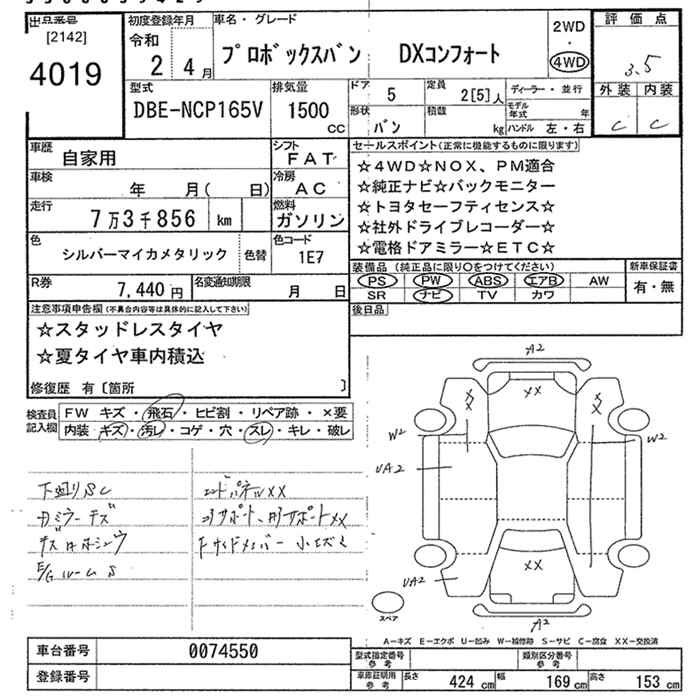 出品番号
[2142]
4019
初度登録年月
令和
2 4月
車名・グレード
プロボックスバン DXコンフォート
2WD
・
4WD
評価点
3.5
外装 内装
C C
型式
DBE-NCP165V
排気量
1500
cc
ドア
5
定員
2[5]人
形状
バン
積数
kg
ディーラー・並行
モデル年式 年
ハンドル 左・右
車歴
自家用
シフト
FAT
車検
年 月( 日)
冷房
AC
走行
7万3千856 km
燃料
ガソリン
色
シルバーマイカメタリック
色替
色コード
1E7
R券
7,440円
名変通知期限
月 日
セールスポイント(正常に機能するものに限ります)
☆4WD☆NOX、PM適合
☆純正ナビ☆バックモニター
☆トヨタセーフティセンス☆
☆社外ドライブレコーダー☆
☆電格ドアミラー☆ETC☆
装備品(純正品に限り○をつけてください)
PS PW ABS エアB AW
SR ナビ TV カワ
新車保証書
有・無
後日品
注意事項申告欄(不具合内容等は具体的に記入して下さい)
☆スタッドレスタイヤ
☆夏タイヤ車内積込
修復歴 有〔箇所 〕
検査員記入欄
FW キズ・飛石・ヒビ割・リペア跡・×要
内装 キズ・汚レ・コゲ・穴・スレ・キレ・破レ
下廻りSC
コアパネルXX
E/GルームS
A2
XX
XX
XX
W2
W2
UA2
XX
UA2
A2
スペア
A－キズ E－エクボ U－凹み W－補修跡 S－サビ C－腐食 XX－交換済
車台番号
0074550
登録番号
型式指定番号
参考
類別区分番号
参考
車庫証明用
参考
長さ 424 cm 幅 169 cm 高さ 153 cm